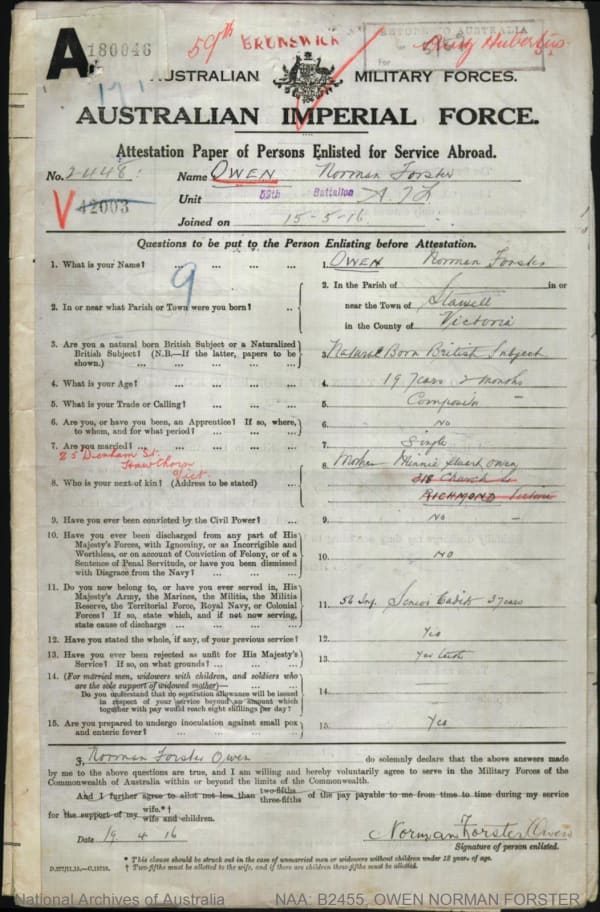 A 180046
59th BRUNSWICK
RETURN TO AUSTRALIA
AUSTRALIAN MILITARY FORCES.
AUSTRALIAN IMPERIAL FORCE.
Attestation Paper of Persons Enlisted for Service Abroad.
No. 2448 Name OWEN Norman Forster
V 42003 Unit 59th Battalion A.I.F.
Joined on 15-5-16
Questions to be put to the Person Enlisting before Attestation.
1. What is your Name? ... ... ... ... 1. OWEN Norman Forster
2. In or near what Parish or Town were you born? .. 2. In the Parish of in or
near the Town of Stawell
in the County of Victoria
9
3. Are you a natural born British Subject or a Naturalized 3. Natural Born British Subject
British Subject? (N.B.—If the latter, papers to be
shown.) ... ... ... ... ...
4. What is your Age? ... ... ... ... 4. 19 years 2 months
5. What is your Trade or Calling? ... ... ... 5. Compositor
6. Are you, or have you been, an Apprentice? If so, where, 6. No
to whom, and for what period? ... ... ...
7. Are you married? ... ... ... ... 7. Single
Hawthorn
Vict.
8. Who is your next of kin? (Address to be stated) ... 8. Mother Minnie Stuart Owen
318 Church St
RICHMOND Victoria
9. Have you ever been convicted by the Civil Power? ... 9. No
10. Have you ever been discharged from any part of His 10. No
Majesty's Forces, with Ignominy, or as Incorrigible and
Worthless, or on account of Conviction of Felony, or of a
Sentence of Penal Servitude, or have you been dismissed
with Disgrace from the Navy? ... ... ...
11. Do you now belong to, or have you ever served in, His 11. 56 Inf. Senior Cadets 3 years
Majesty's Army, the Marines, the Militia, the Militia
Reserve, the Territorial Force, Royal Navy, or Colonial
Forces? If so, state which, and if not now serving,
state cause of discharge ... ... ... ...
12. Have you stated the whole, if any, of your previous service? 12. Yes
13. Have you ever been rejected as unfit for His Majesty's 13. Yes
Service? If so, on what grounds? ... ... ...
14. (For married men, widowers with children, and soldiers who 14.
are the sole support of widowed mother)—
Do you understand that no separation allowance will be issued
in respect of your service beyond an amount which
together with pay would reach eight shillings per day?
15. Are you prepared to undergo inoculation against small pox 15. Yes
and enteric fever? ... ... ... ...
I, Norman Forster Owen do solemnly declare that the above answers made
by me to the above questions are true, and I am willing and hereby voluntarily agree to serve in the Military Forces of the
Commonwealth of Australia within or beyond the limits of the Commonwealth.
And I further agree to allot not less than two-fifths three-fifths of the pay payable to me from time to time during my service
for the support of my wife.*† wife and children.
Date 19 4 16 Norman Forster Owen
Signature of person enlisted.
* This clause should be struck out in the case of unmarried men or widowers without children under 18 years of age.
† Two-fifths must be allotted to the wife, and if there are children three-fifths must be allotted.
National Archives of Australia NAA: B2455, OWEN NORMAN FORSTER